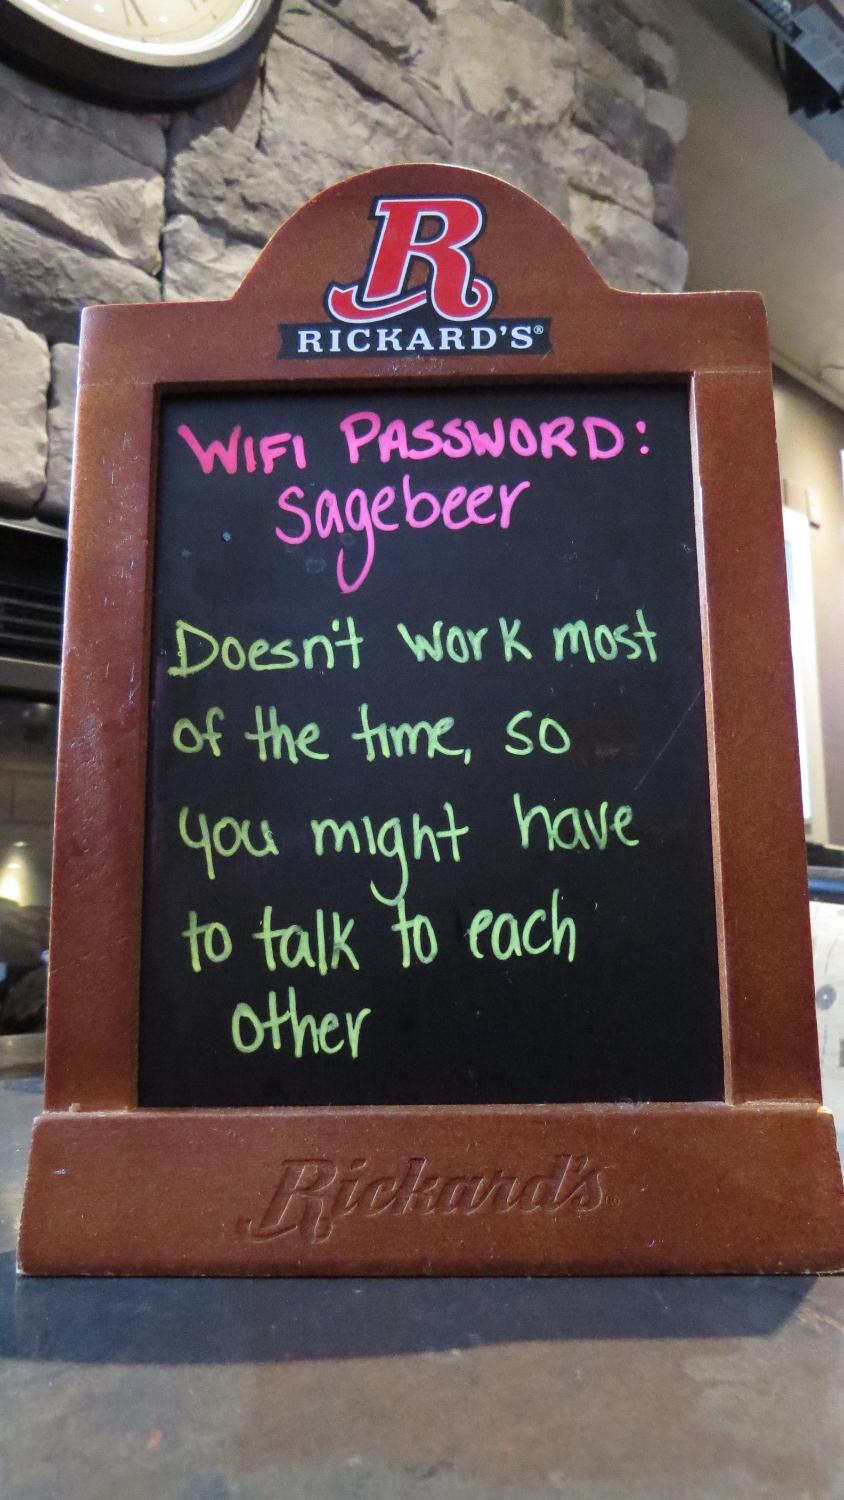 R
RICKARD'S®
WIFI PASSWORD:
sagebeer
Doesn't work most
of the time, so
you might have
to talk to each
other
Rickard's